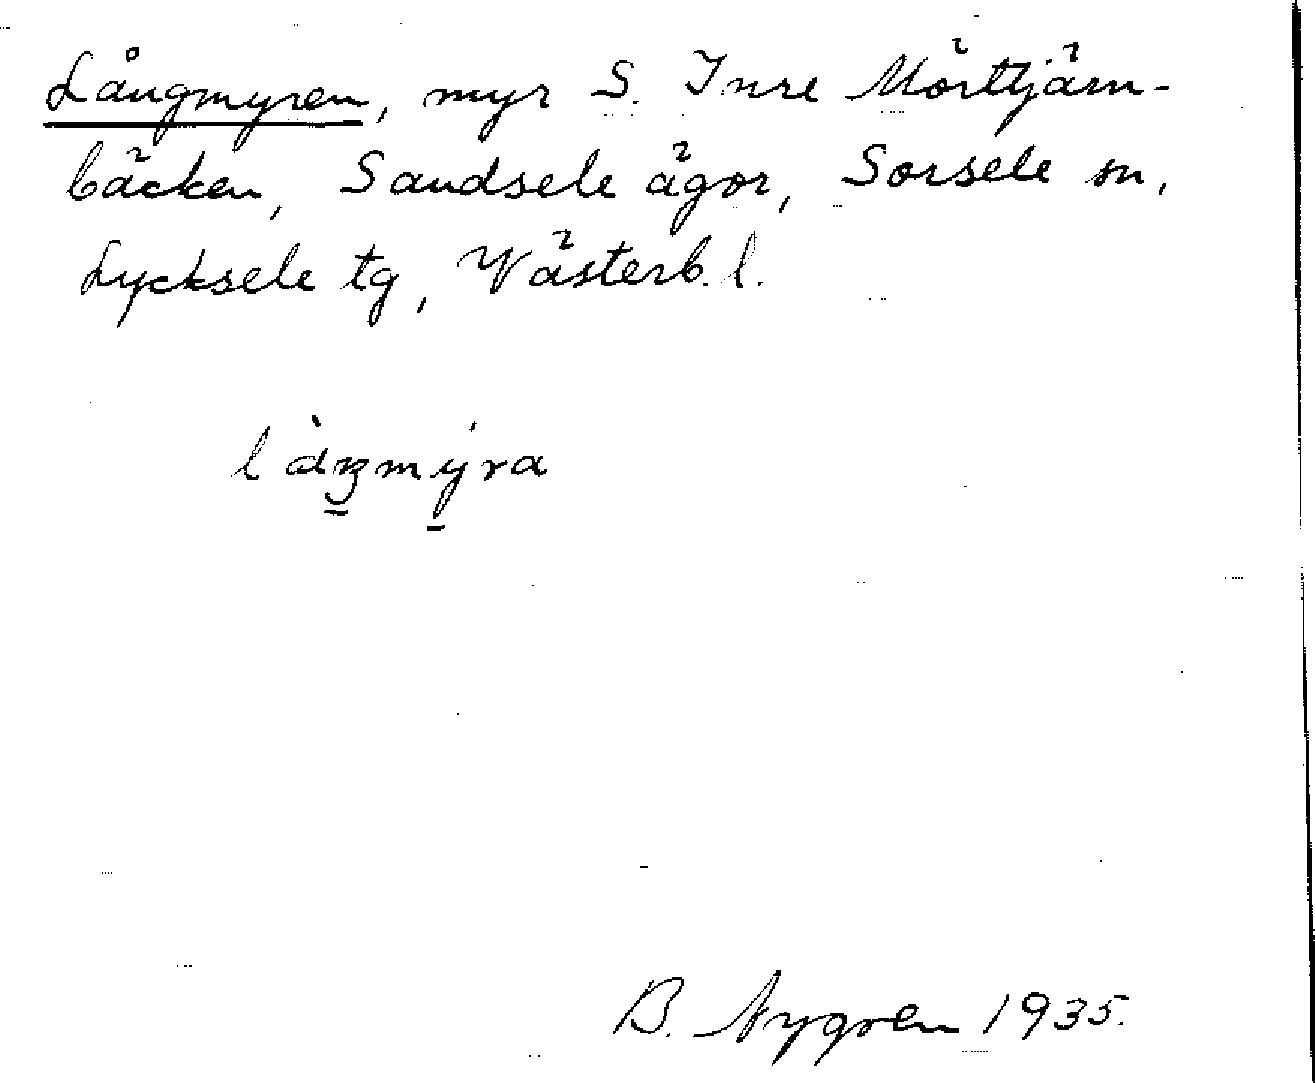 Långmyren, myr S. Inre Mörttjärn-
bäcken, Sandsele ägor, Sorsele sn,
Lycksele tg, Västerb. l.
làŋmýra
B. Nygren 1935.